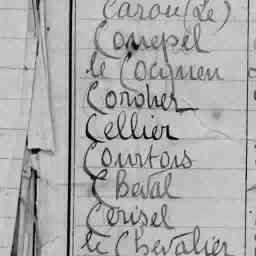 Carou (Le)
Conepel
le Cocqmen
Coroher
Cellier
Courtois
Cheval
Cerisel
le Chevalier